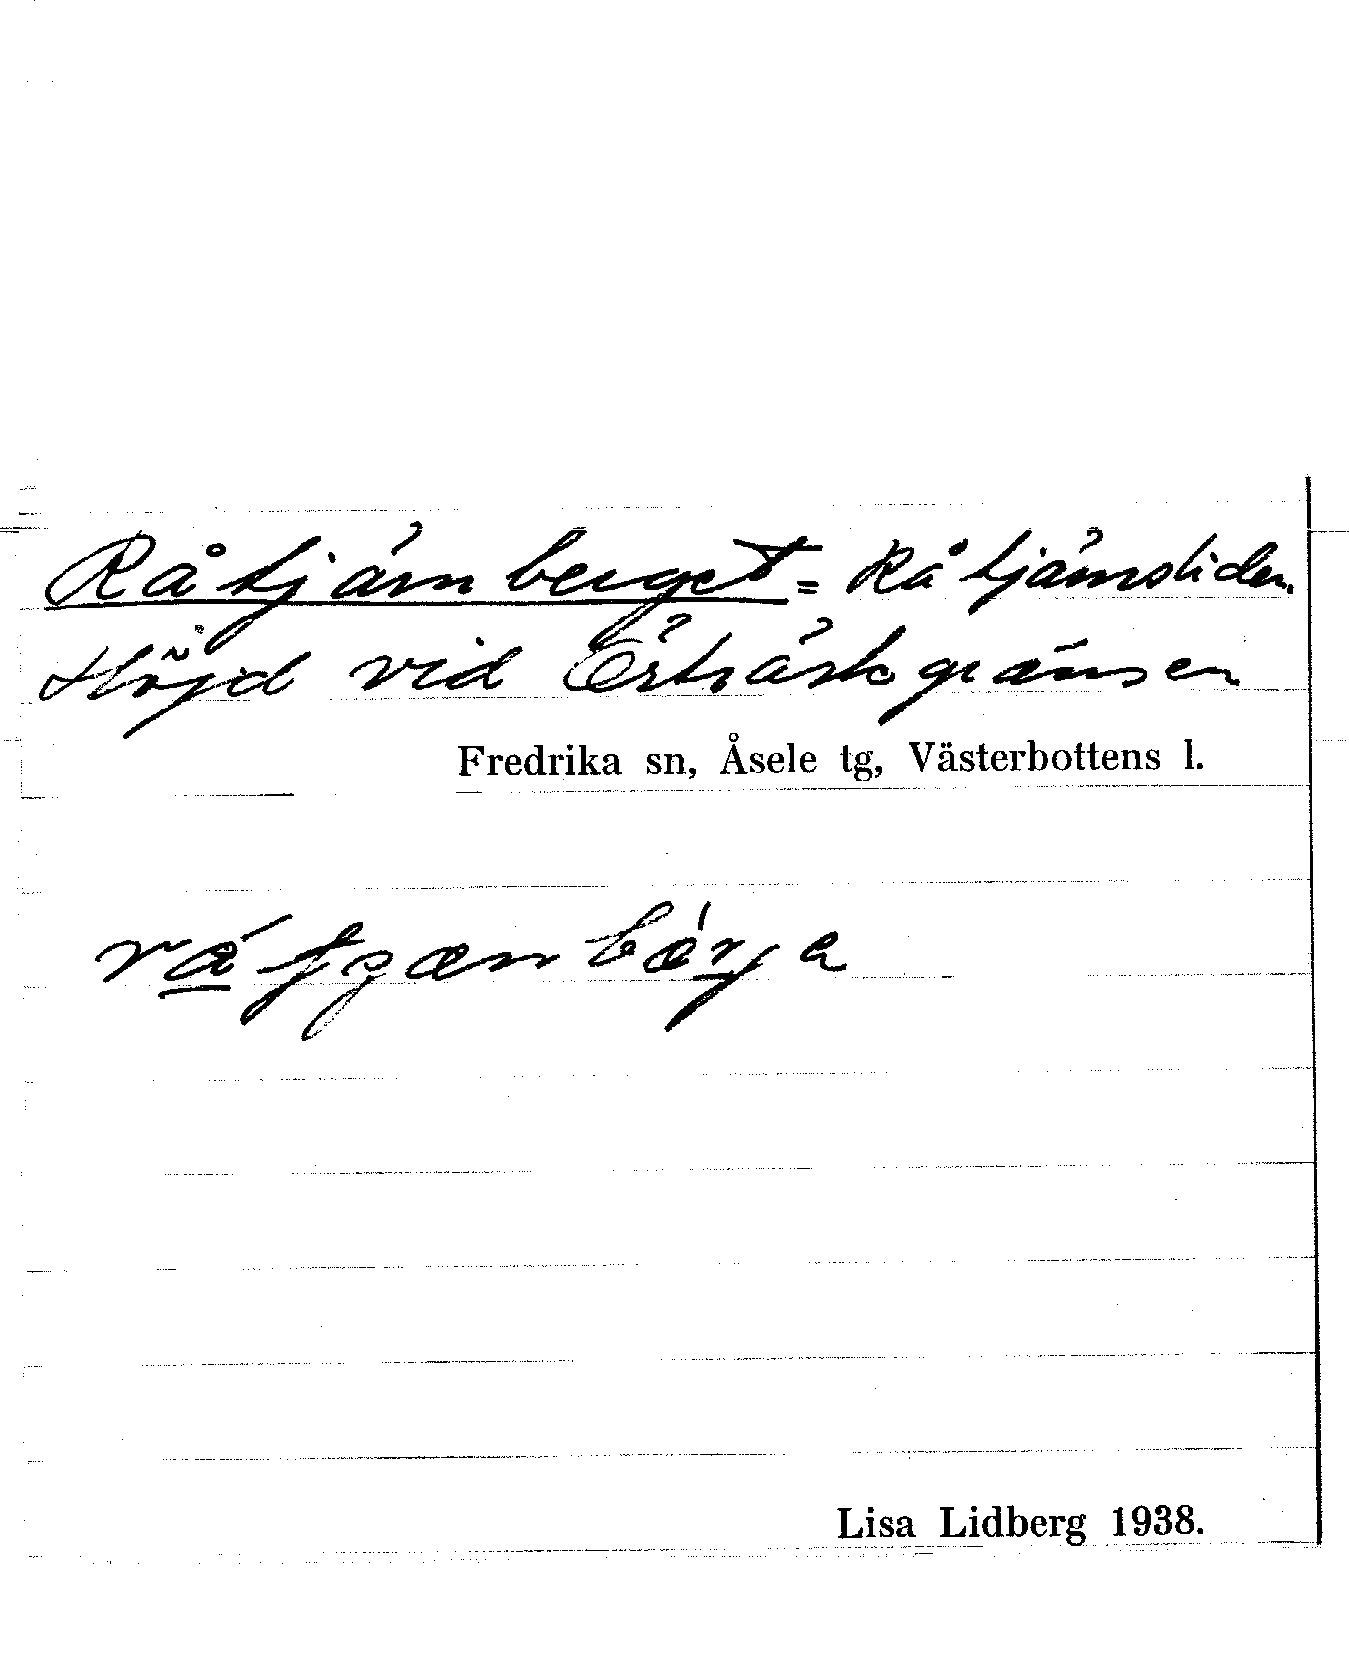 Råtjärnberget = Råtjärnsliden.
Höjd vid Örträskgränsen
Fredrika sn, Åsele tg, Västerbottens l.
Lisa Lidberg 1938.